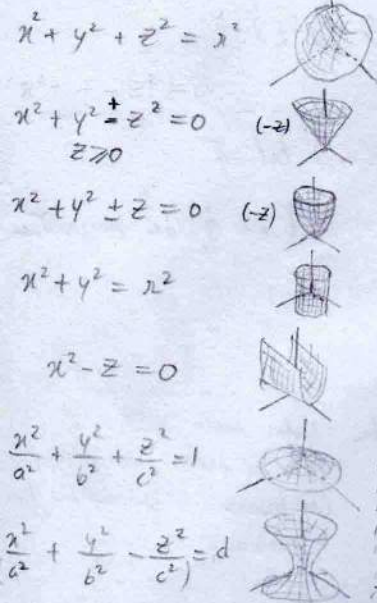 x² + y² + z² = r²
x² + y² ± z² = 0 (-z)
z ≥ 0
x² + y² ± z = 0 (-z)
x² + y² = r²
x² - z = 0
x²/a² + y²/b² + z²/c² = 1
x²/a² + y²/b² - z²/c²) = d